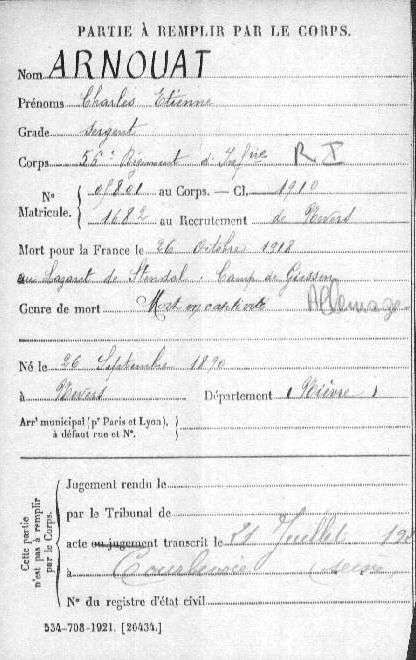 PARTIE À REMPLIR PAR LE CORPS.
Nom ARNOUAT
Prénoms Charles Etienne
Grade Sergent
Corps 56e Régiment d'Infrie R I
N° Matricule. { 08801 au Corps. — Cl. 1910
1682 au Recrutement de Nevers
Mort pour la France le 26 Octobre 1918
au Lazaret de Stendal. Camp de Giessen
Genre de mort Mort en captivité Allemagne
Né le 26 Septembre 1890
à Nevers Département (Nièvre)
Arrt municipal (pr Paris et Lyon),
à défaut rue et N°.
Cette partie n'est pas à remplir par le Corps.
Jugement rendu le
par le Tribunal de
acte ou jugement transcrit le 21 Juillet 192
à Courbevoie Seine
N° du registre d'état civil
534-708-1921. [26434.]